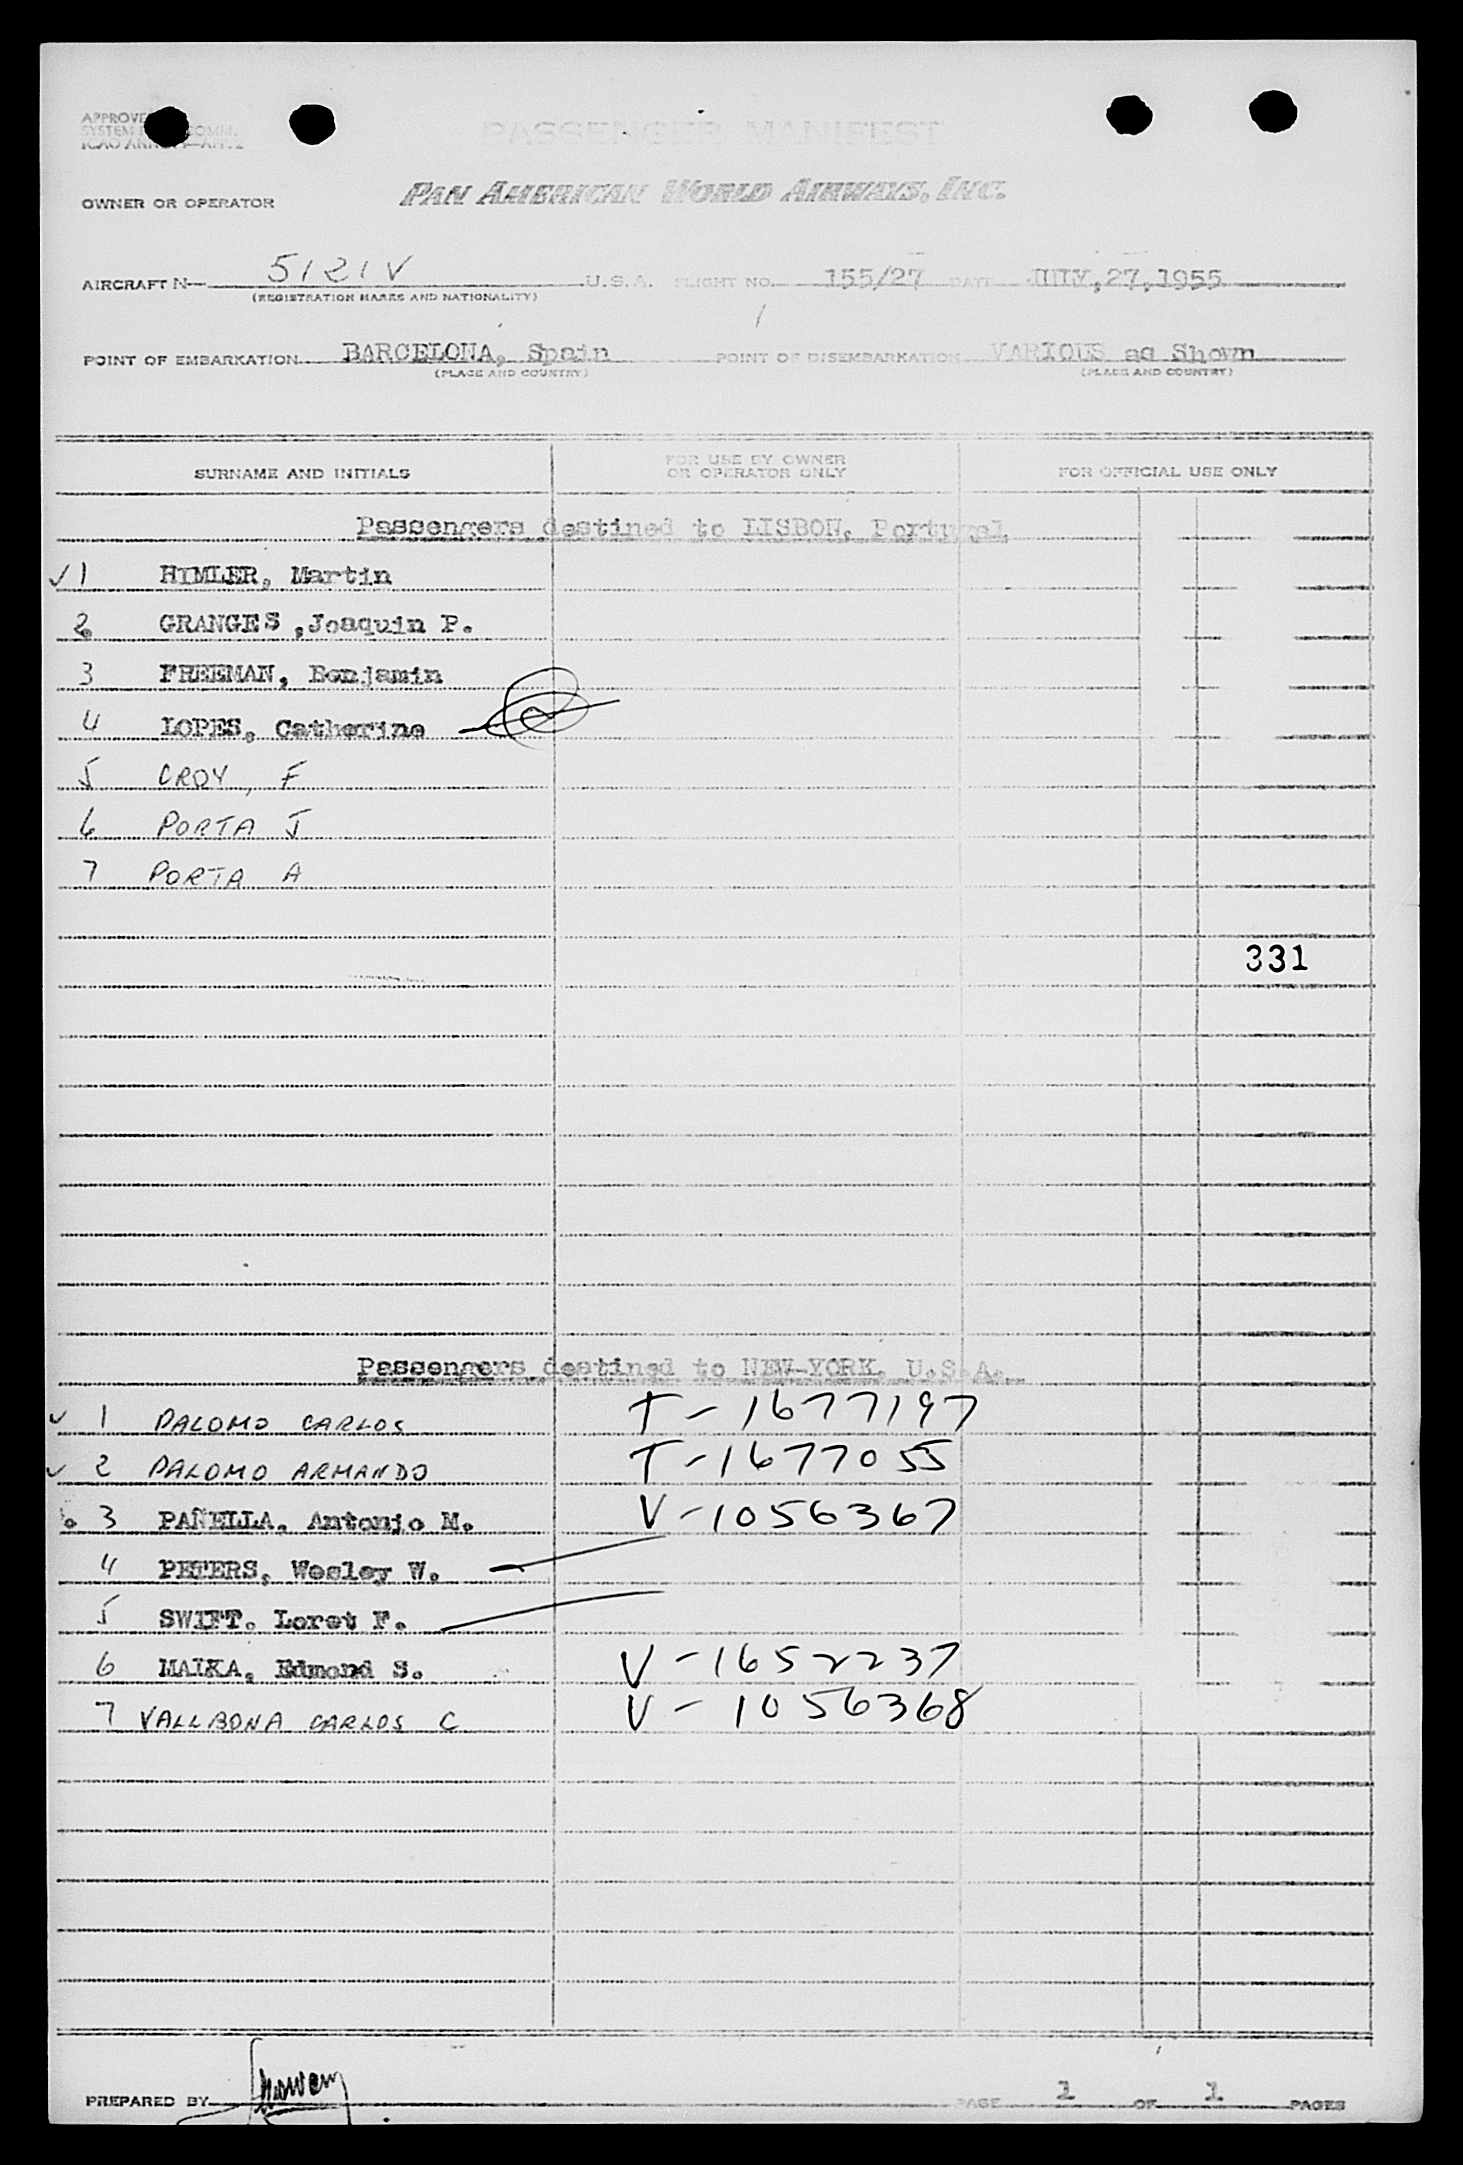 APPROVE
SYSTEM COMM.
PASSENGER MANIFEST
OWNER OR OPERATOR PAN AMERICAN WORLD AIRWAYS, INC.
AIRCRAFT N— 5121V U.S.A. FLIGHT NO. 155/27 DATE JULY,27,1955
(REGISTRATION MARKS AND NATIONALITY)
POINT OF EMBARKATION BARCELONA, Spain POINT OF DISEMBARKATION VARIOUS as Shown
(PLACE AND COUNTRY) (PLACE AND COUNTRY)
SURNAME AND INITIALS FOR USE BY OWNER OR OPERATOR ONLY FOR OFFICIAL USE ONLY
Passengers destined to LISBON, Portugal
✓ 1 HIMLER, Martin
2 GRANGES ,Joaquin P.
3 FREEMAN, Benjamin
4 LOPES, Catherine
5 CROY, F
6 PORTA J
7 PORTA A
331
Passengers destined to NEW-YORK, U.S.A.
✓ 1 PALOMO CARLOS T-1677197
✓ 2 PALOMO ARMANDO T-1677055
3 PAÑELLA, Antonio M. V-1056367
4 PETERS, Wesley W.
5 SWIFT, Loret F.
6 MAIKA, Edmond S. V-1652237
7 VALLBONA CARLOS C V-1056368
PREPARED BY PAGE 1 OF 1 PAGES